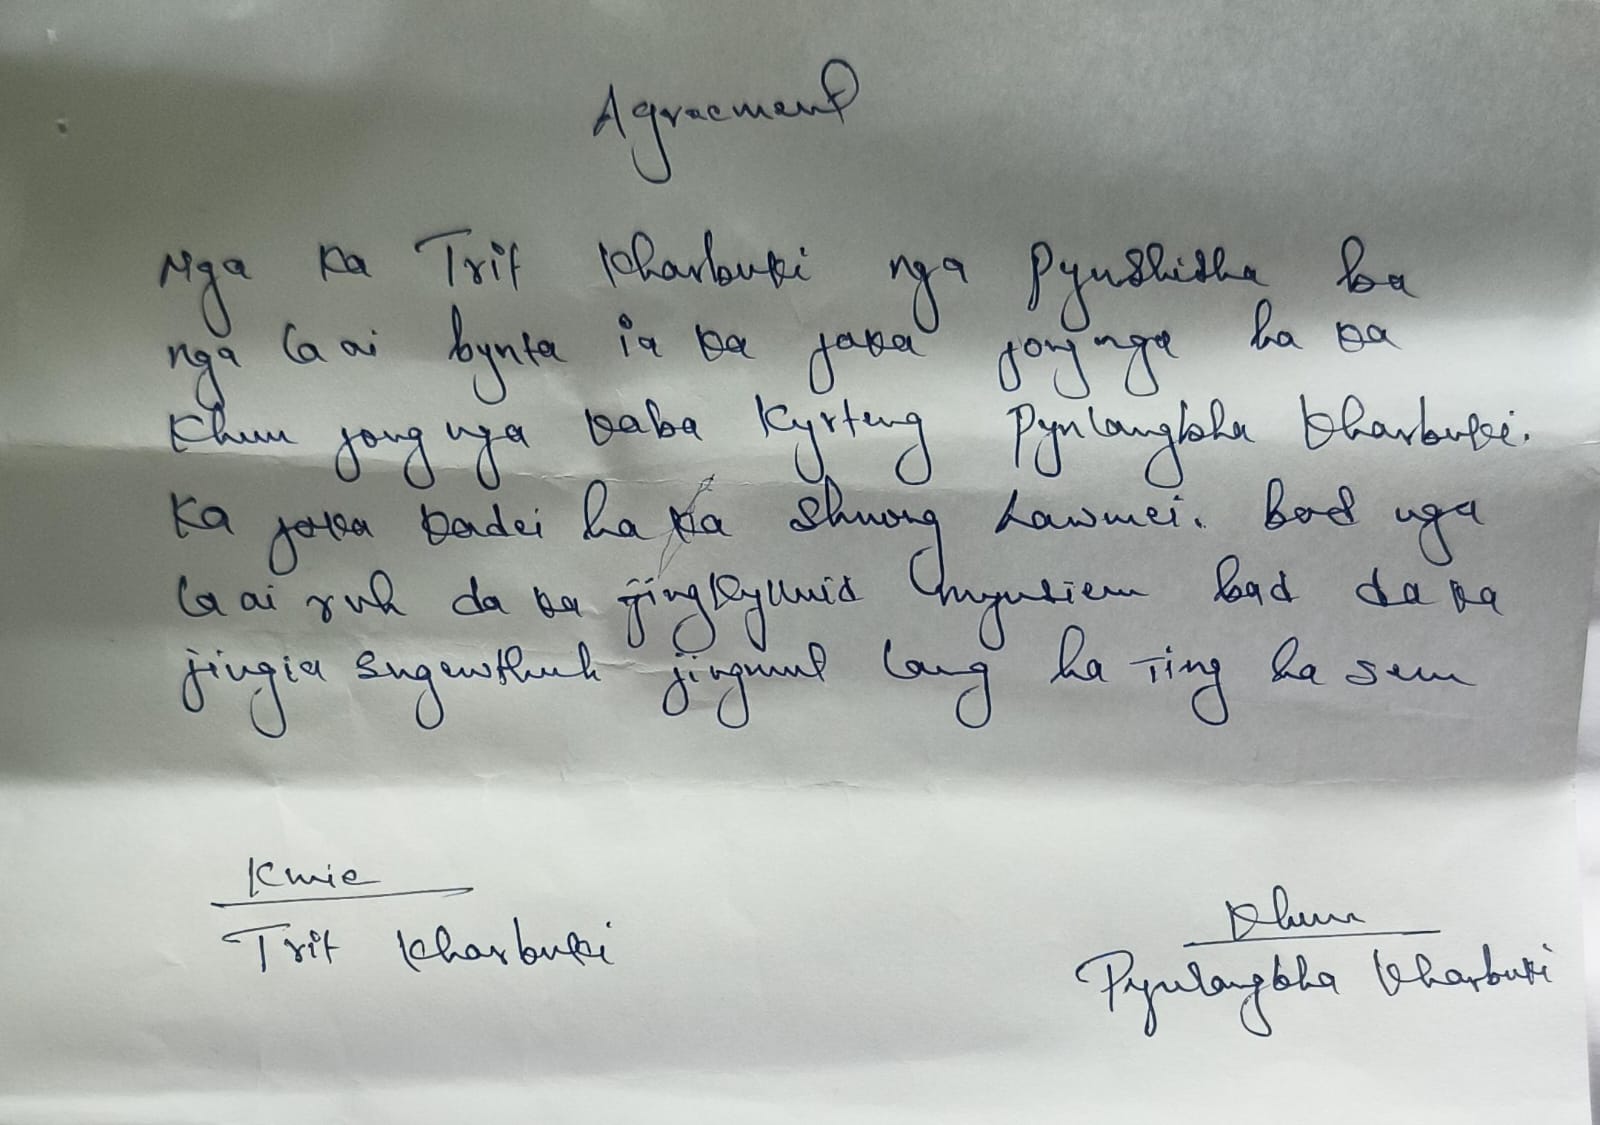 Agreement
Nga Ka Trit Kharbuki nga Pynshisha ba
nga la ai bynta ia ka jaka jong nga ha ka
Khun jong nga kaba Kyrteng Pynlangbha Kharbuki.
Ka jaka kadei ha ka Shnong Lawmei. bad nga
la ai ruh da ka jingkylluid mynsiem bad da ka
jingia sngewthuh jingmut lang ha Ting ha sem
Kmie
Trit Kharbuki
Khun
Pynlangbha Kharbuki